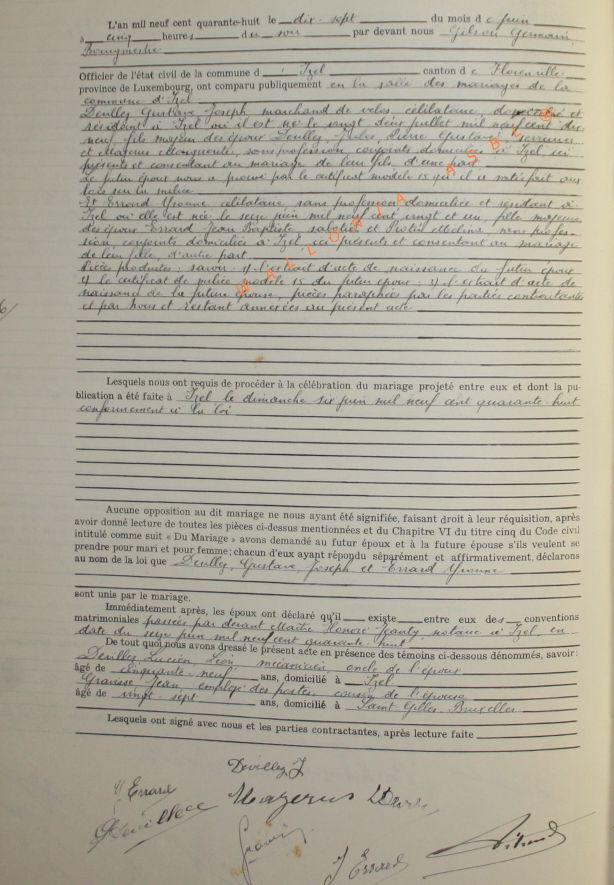 L'an mil neuf cent quarante-huit le dix-sept du mois de juin
à cinq heures du soir par devant nous Gilson Germain,
Bourgmestre
Officier de l'état civil de la commune d'Izel canton de Florenville
province de Luxembourg, ont comparu publiquement en la salle des mariages de la
commune d'Izel
Devillez Gustave Joseph marchand de vélos, célibataire, domicilié et
résidant à Izel où il est né le vingt deux juillet mil neuf cent dix
neuf fils majeur des époux Devillez Jules, Pierre Gustave, serrurier
et Mazerus Marguerite, sans profession, conjoints domiciliés à Izel ici
présents et consentant au mariage de leur fils, d'une part
Le futur époux nous a prouvé par le certificat modèle 15 qu'il a satisfait aux
lois sur la milice
Et Errard Yvonne célibataire, sans profession domiciliée et résidant à
Izel où elle est née le seize juin mil neuf cent vingt et un, fille majeure
des époux Errard Jean Baptiste sabotier et Protin sans profes-
sion, conjoints domiciliés à Izel, ici présents et consentant au mariage
de leur fille, d'autre part
Pièces produites, savoir: 1) l'extrait d'acte de naissance du futur époux
2) le certificat de milice modèle 15 du futur époux; 3) l'extrait d'acte de
naissance de la future épouse, pièces paraphées par les parties contractantes
et par nous et restant annexées au présent acte
WALLONIA ASBL
Lesquels nous ont requis de procéder à la célébration du mariage projeté entre eux et dont la pu-
blication a été faite à Izel le dimanche six juin mil neuf cent quarante-huit
conformément à la loi
Aucune opposition au dit mariage ne nous ayant été signifiée, faisant droit à leur réquisition, après
avoir donné lecture de toutes les pièces ci-dessus mentionnées et du Chapitre VI du titre cinq du Code civil
intitulé comme suit « Du Mariage » avons demandé au futur époux et à la future épouse s'ils veulent se
prendre pour mari et pour femme; chacun d'eux ayant répondu séparément et affirmativement, déclarons
au nom de la loi que Devillez, Gustave, Joseph et Errard Yvonne
sont unis par le mariage.
Immédiatement après, les époux ont déclaré qu'il existe entre eux des conventions
matrimoniales passées par devant Maître Honoré Jeanty, notaire à Izel, en
date du seize juin mil neuf cent quarante huit
De tout quoi nous avons dressé le présent acte en présence des témoins ci-dessous dénommés, savoir:
Devillez Lucien, Léon mécanicien oncle de l'époux
âgé de cinquante-neuf ans, domicilié à Izel
Jean employé des postes cousin de l'épouse
âgé de vingt-sept ans, domicilié à Saint Gilles-Bruxelles
Lesquels ont signé avec nous et les parties contractantes, après lecture faite
Devillez J
Y Errard
GDevillez Mazerus
J Errard